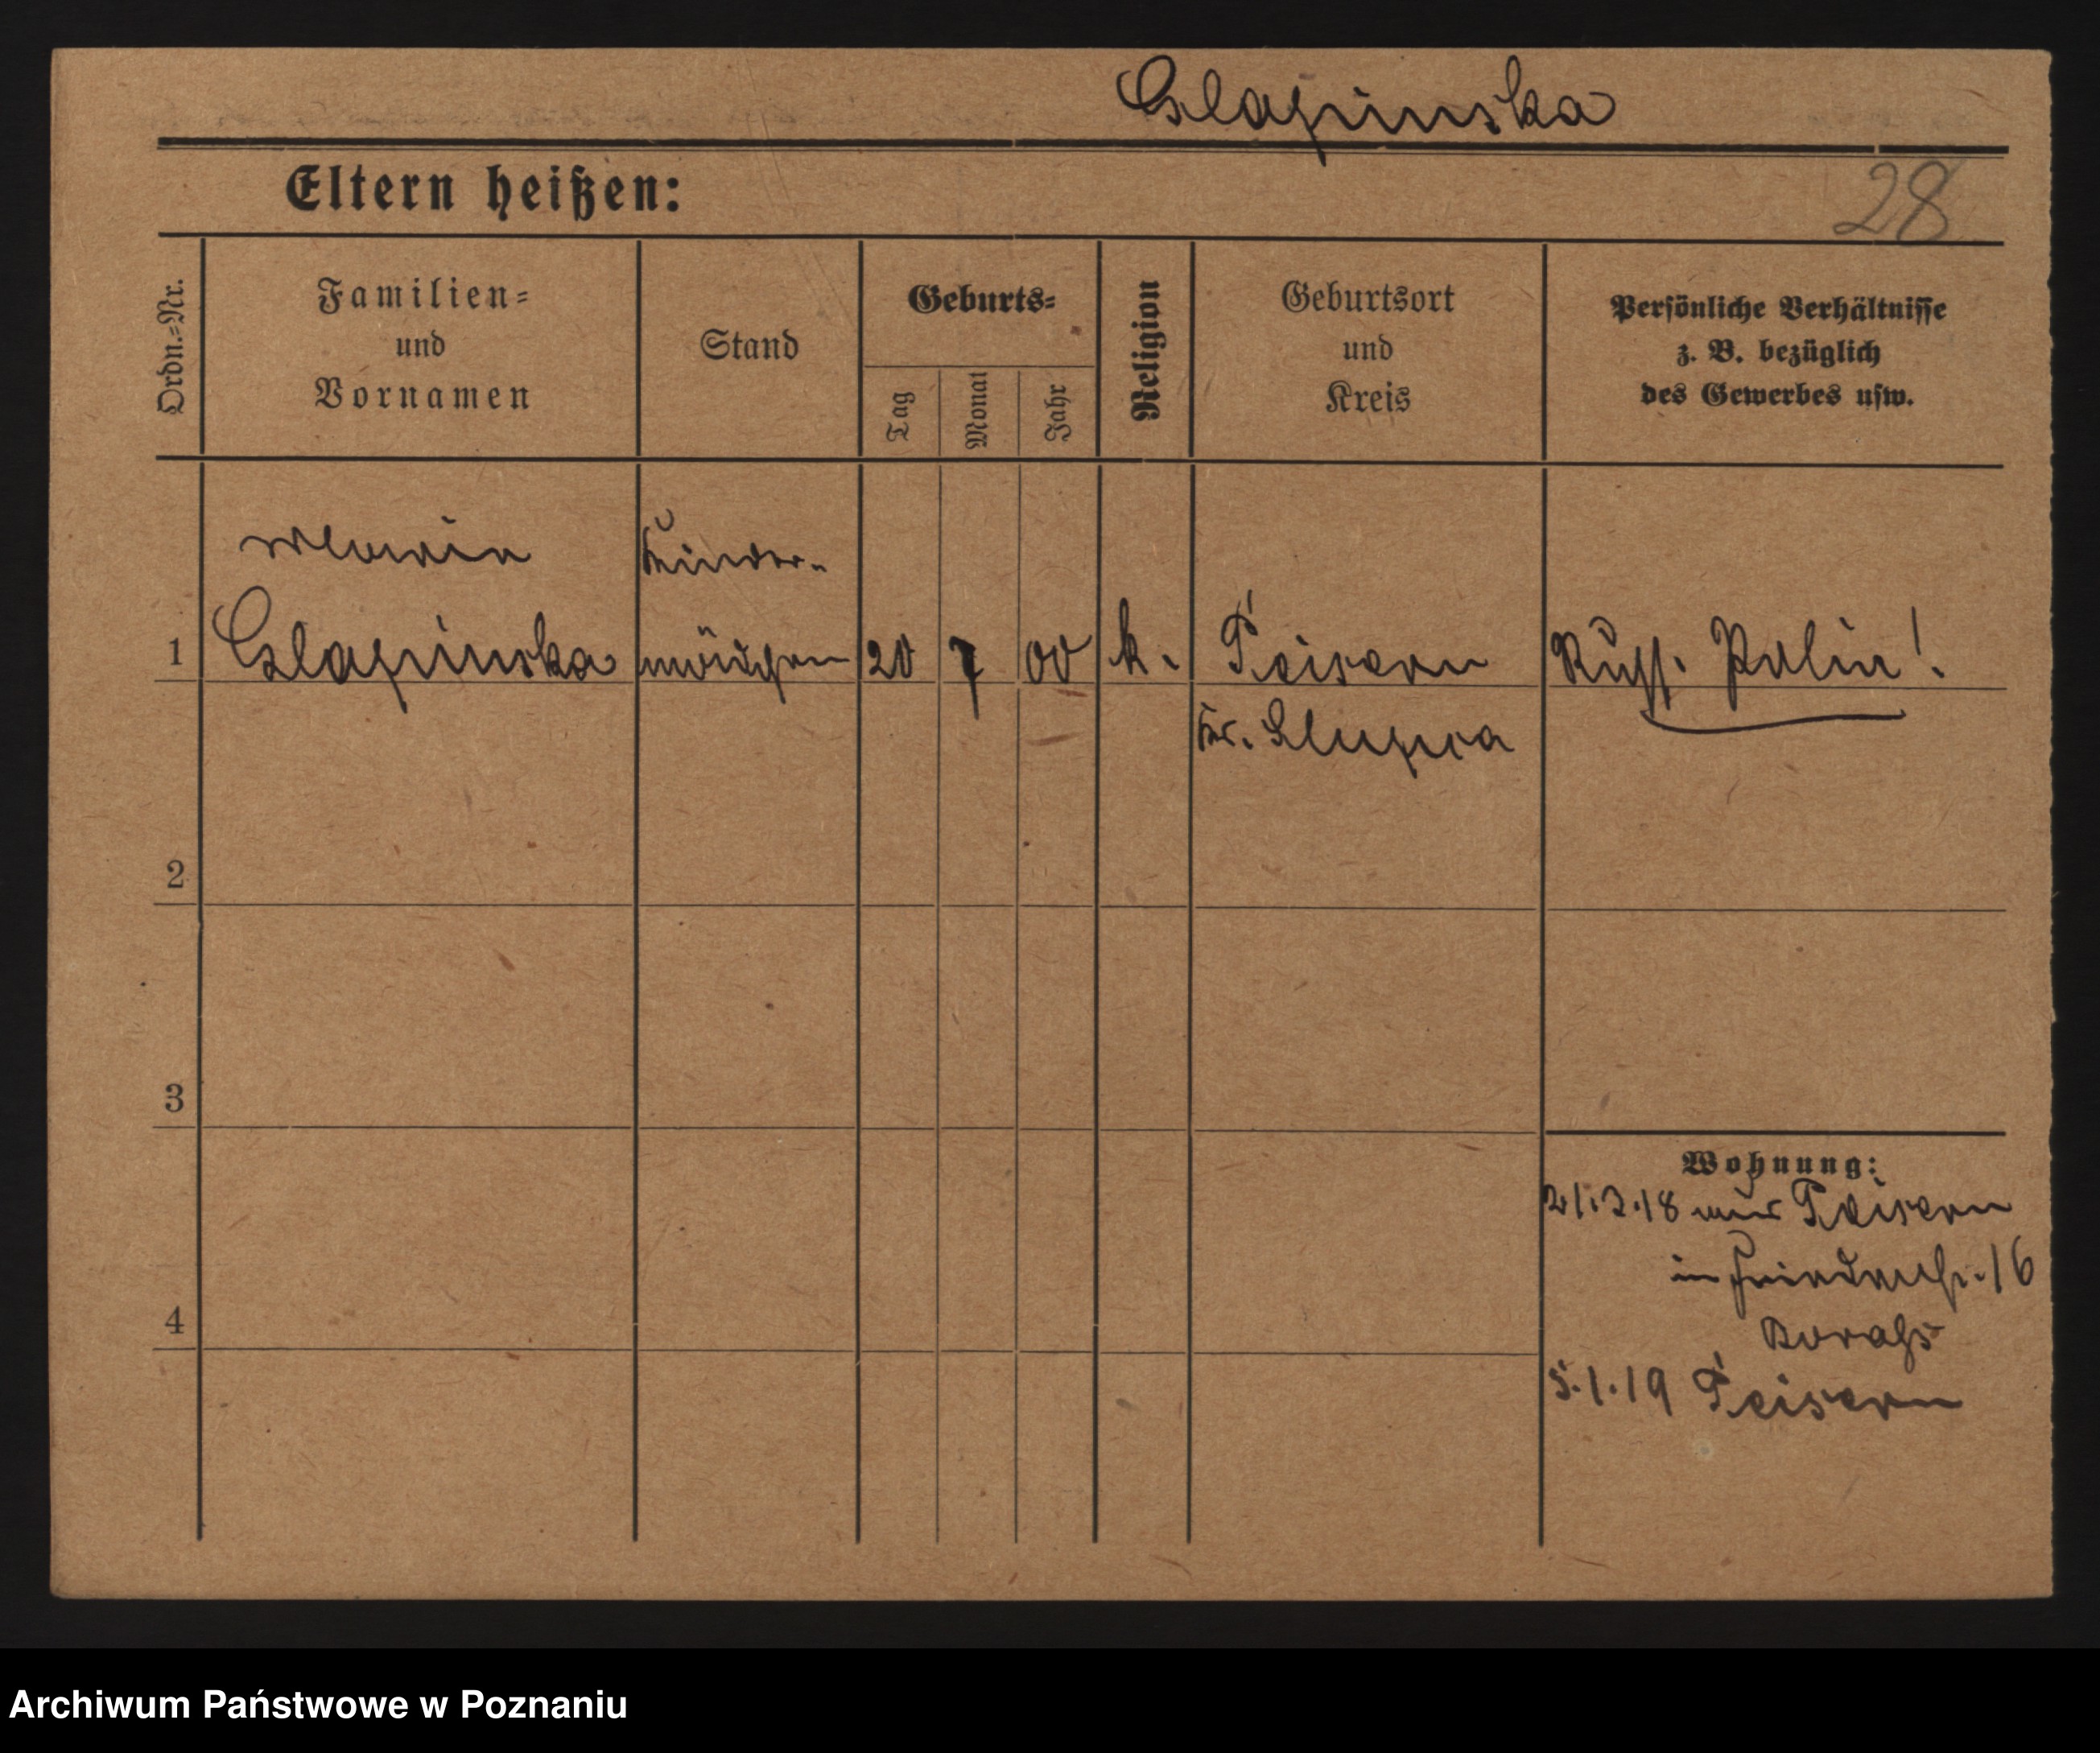 Glapinska
Eltern heißen:
28
Ordn.=Nr.
Familien=
und
Vornamen
Stand
Geburts=
Tag
Monat
Jahr
Religion
Geburtsort
und
Kreis
Persönliche Verhältnisse
z. B. bezüglich
des Gewerbes usw.
Maria
Kinder-
1
Glapinska
mädchen
20
7
00
k.
Peisern
Russ. Polin!
Kr. Slupca
2
3
4
Wohnung:
21.3.18 aus Peisern
in 16
5.1.19 Peisern
Archiwum Państwowe w Poznaniu